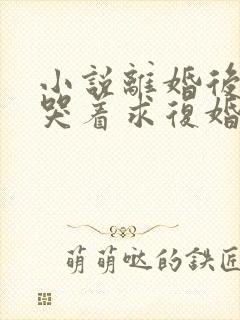 小說離婚後
哭着求復婚
萌萌哒的鉄匠